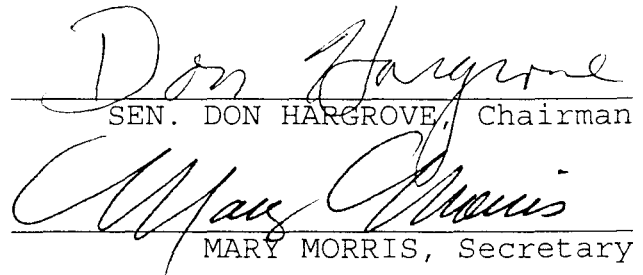 Don Hargrove
SEN. DON HARGROVE, Chairman
Mary Morris
MARY MORRIS, Secretary